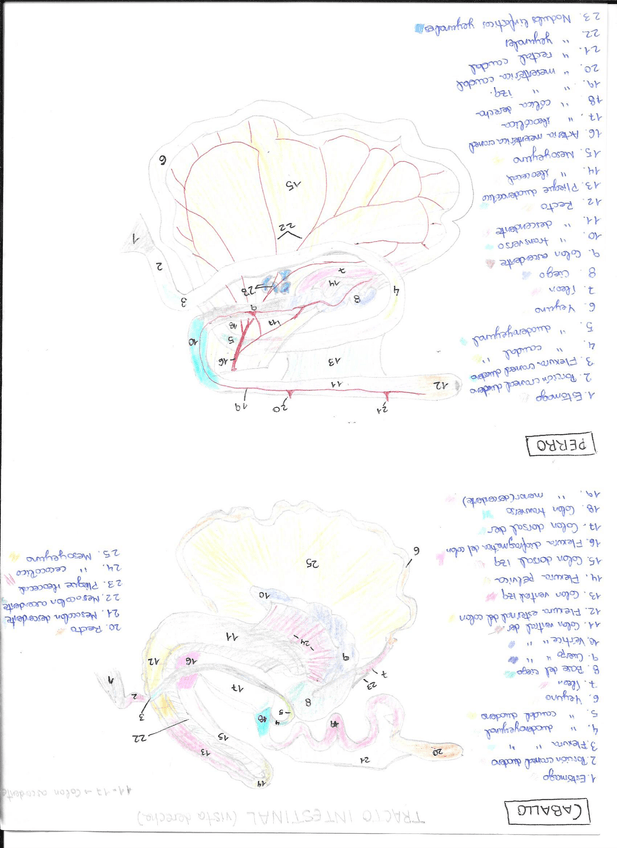 TRACTO INTESTINAL (vista derecha)
11-17 → Colon ascendente
CABALLO
1. Estómago
2. Porción craneal duodeno
3. Flexura " "
4. " duodenoyeyunal
5. " caudal duodeno
6. Yeyuno
7. Ileon
8. Base del ciego
9. Cuerpo " "
10. Vértice " "
11. Colon ventral der
12. Flexura esternal del colon
13. Colon ventral izq
14. Flexura pélvica
15. Colon dorsal izq
16. Flexura diafragmática del colon
17. Colon dorsal der
18. Colon traverso
19. " menor (descendente)
20. Recto
21. Mesocolon descendente
22. Mesocolon ascendente
23. Pliegue ileocecal
24. " cecocólico
25. Mesoyeyuno
14
13
15
22
3
2
1
12
16
17
11
18
4
5
8
19
21
20
7
23
9
24
10
25
6
PERRO
1. Estómago
2. Porción craneal duodeno
3. Flexura craneal duodeno
4. " caudal "
5. " duodenoyeyunal
6. Yeyuno
7. Ileon
8. Ciego
9. Colon ascendente
10. " tranverso
11. " descendente
12. Recto
13. Pliegue duodenocólico
14. " ileocecal
15. Mesoyeyuno
16. Arteria mesentérica craneal
17. " ileocólica
18. " cólica derecha
19. " " izq.
20. " mesentérica caudal
21. " rectal caudal
22. " yeyunales
23. Nódulos linfáticos yeyunales
21
20
19
12
11
13
16
10
5
18
17
9
8
14
7
4
23
3
2
1
22
15
6